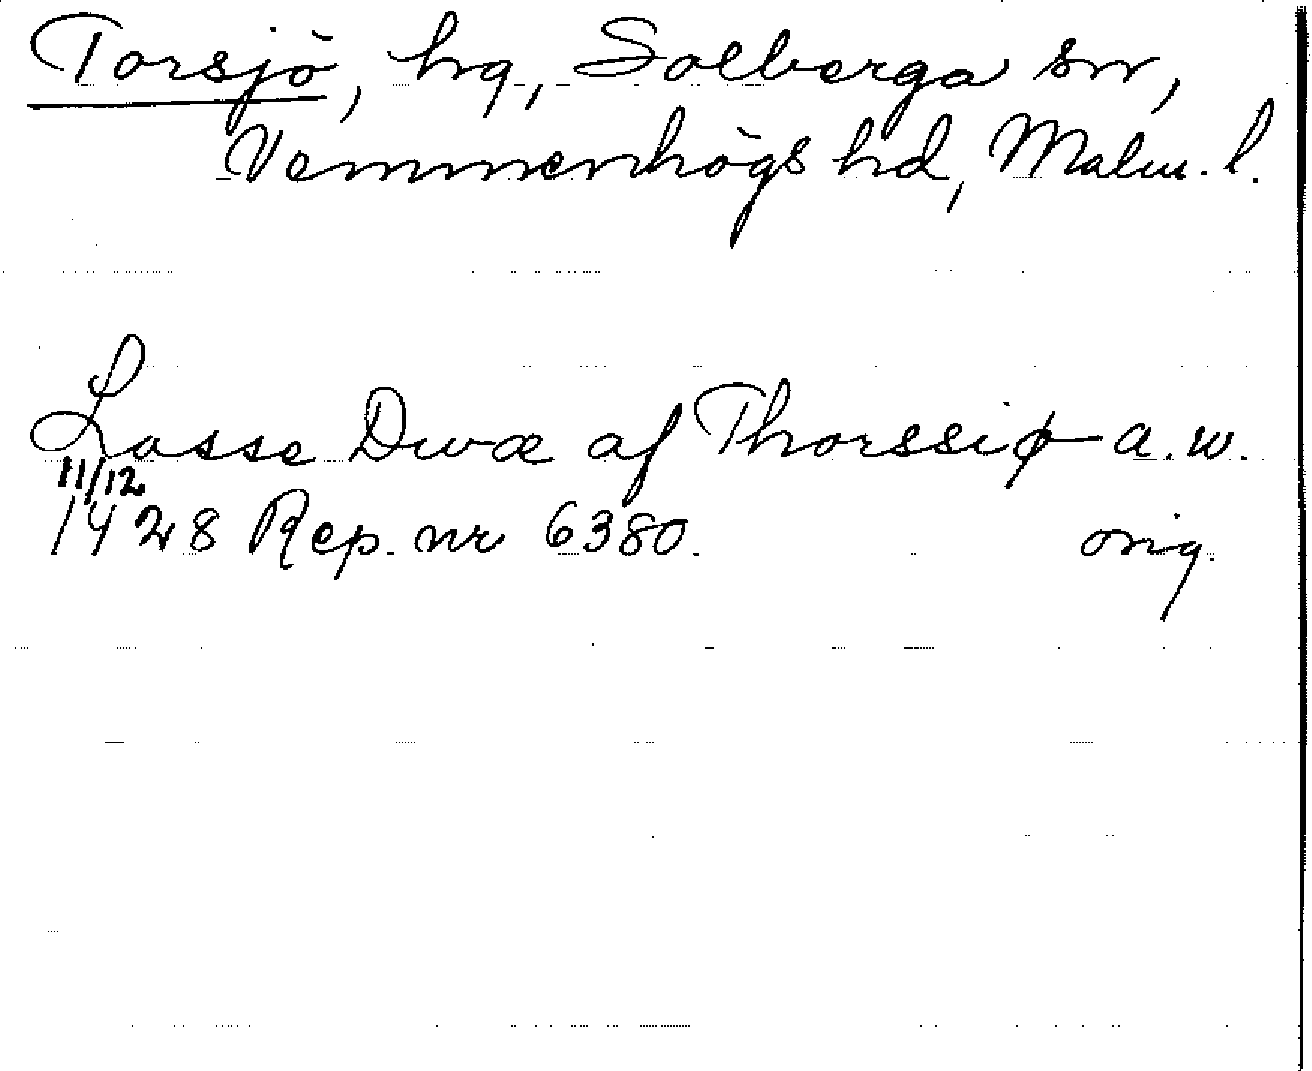 Torsjö, hg, Solberga sn,
Vemmenhögs hd, Malm. l.
Lasse Dwæ af Thorssiø a.w.
11/12
1428 Rep. nr 6380. orig.